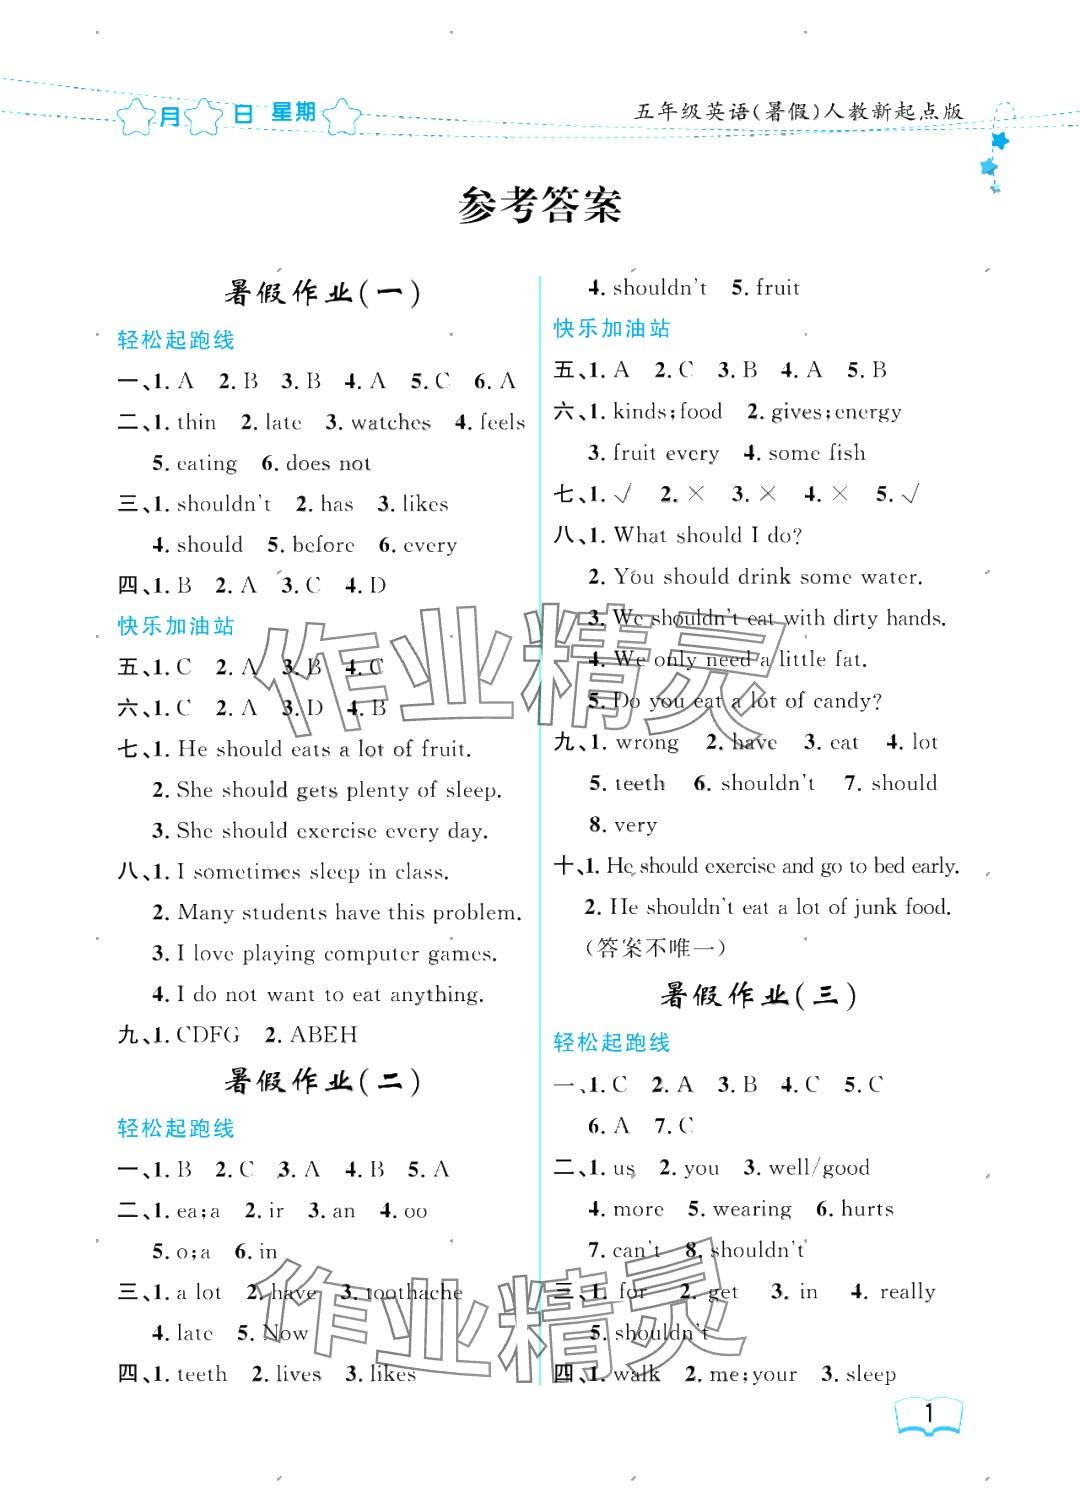 月 日 星期
五年级英语(暑假)人教新起点版
参考答案
暑假作业(一)
轻松起跑线
一、1. A 2. B 3. B 4. A 5. C 6. A
二、1. thin 2. late 3. watches 4. feels
5. eating 6. does not
三、1. shouldn't 2. has 3. likes
4. should 5. before 6. every
四、1. B 2. A 3. C 4. D
快乐加油站
五、1. C 2. A 3. B 4. C
六、1. C 2. A 3. D 4. B
七、1. He should eats a lot of fruit.
2. She should gets plenty of sleep.
3. She should exercise every day.
八、1. I sometimes sleep in class.
2. Many students have this problem.
3. I love playing computer games.
4. I do not want to eat anything.
九、1. CDFG 2. ABEH
暑假作业(二)
轻松起跑线
一、1. B 2. C 3. A 4. B 5. A
二、1. ea;a 2. ir 3. an 4. oo
5. o;a 6. in
三、1. a lot 2. have 3. toothache
4. late 5. Now
四、1. teeth 2. lives 3. likes
4. shouldn't 5. fruit
快乐加油站
五、1. A 2. C 3. B 4. A 5. B
六、1. kinds;food 2. gives;energy
3. fruit every 4. some fish
七、1. √ 2. × 3. × 4. × 5. √
八、1. What should I do?
2. You should drink some water.
3. We shouldn't eat with dirty hands.
4. We only need a little fat.
5. Do you eat a lot of candy?
九、1. wrong 2. have 3. eat 4. lot
5. teeth 6. shouldn't 7. should
8. very
十、1. He should exercise and go to bed early.
2. He shouldn't eat a lot of junk food.
(答案不唯一)
暑假作业(三)
轻松起跑线
一、1. C 2. A 3. B 4. C 5. C
6. A 7. C
二、1. us 2. you 3. well/good
4. more 5. wearing 6. hurts
7. can't 8. shouldn't
三、1. for 2. get 3. in 4. really
5. shouldn't
四、1. walk 2. me;your 3. sleep
1
作业精灵
作业精灵